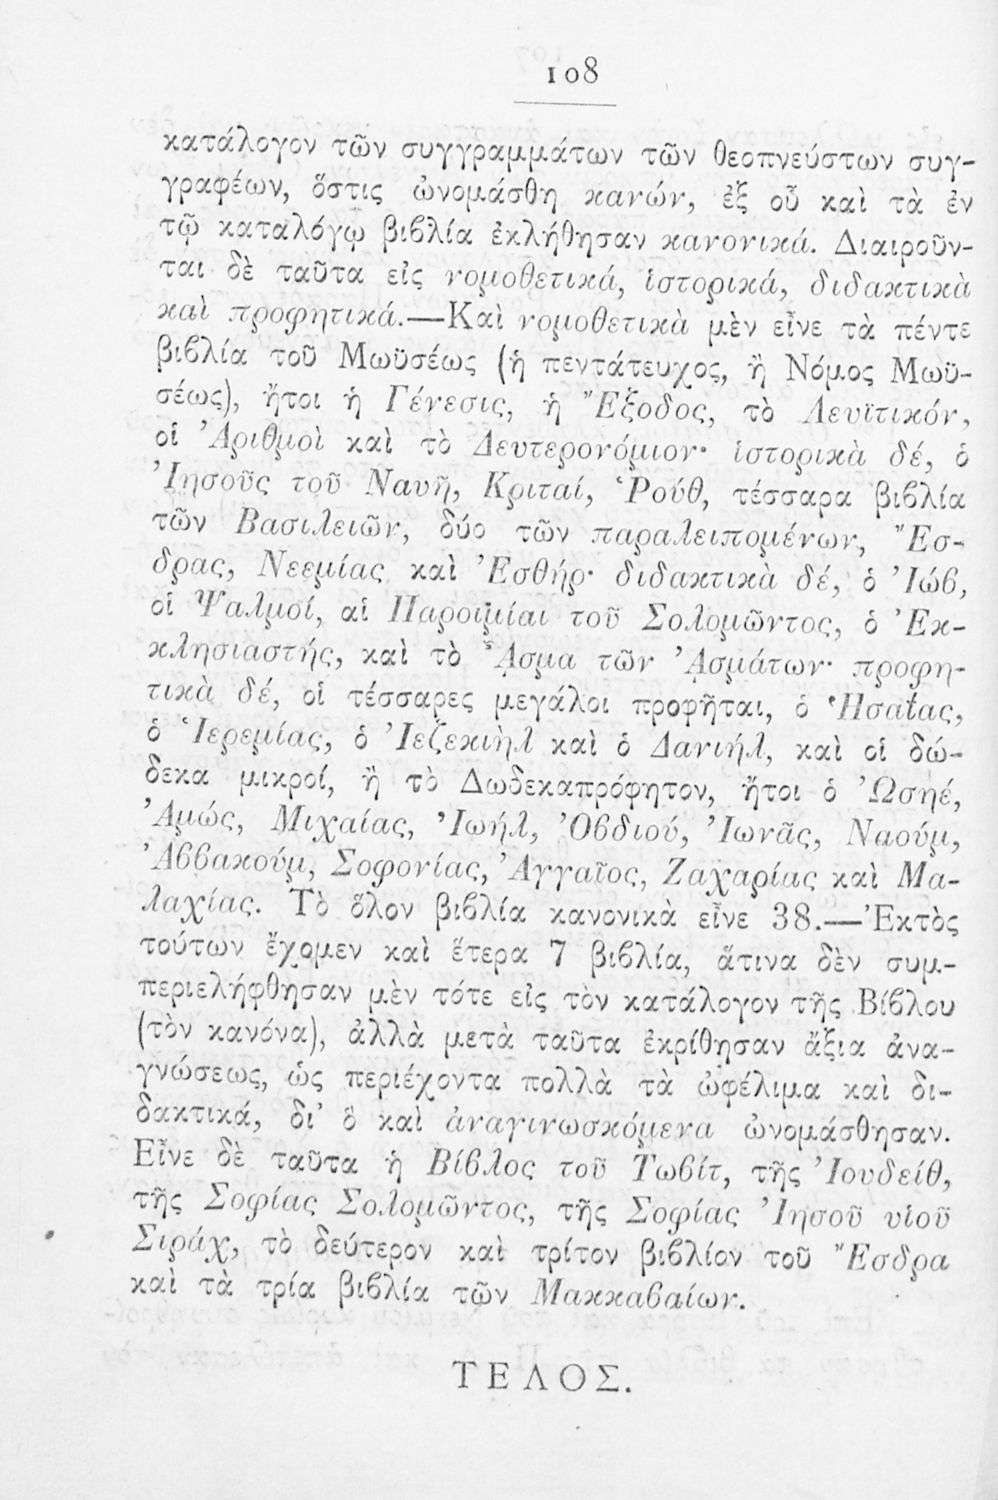 108
κατάλογον τῶν συγγραμμάτων τῶν θεοπνεύστων συγ-
γραφέων, ὅστις ὠνομάσθη κανών, ἐξ οὗ καὶ τὰ ἐν
τῷ καταλόγῳ βιβλία ἐκλήθησαν κανονικά. Διαιροῦν-
ται δὲ ταῦτα εἰς νομοθετικά, ἱστορικά, διδακτικὰ
καὶ προφητικά.—Καὶ νομοθετικὰ μὲν εἶνε τὰ πέντε
βιβλία τοῦ Μωϋσέως (ἡ πεντάτευχος, ἢ Νόμος Μωϋ-
σέως), ἤτοι ἡ Γένεσις, ἡ Ἔξοδος, τὸ Λευϊτικόν,
οἱ Ἀριθμοὶ καὶ τὸ Δευτερονόμιον· ἱστορικὰ δέ, ὁ
Ἰησοῦς τοῦ Ναυῆ, Κριταί, Ῥούθ, τέσσαρα βιβλία
τῶν Βασιλειῶν, δύο τῶν παραλειπομένων, Ἔσ-
δρας, Νεεμίας καὶ Ἐσθήρ· διδακτικὰ δέ, ὁ Ἰώβ,
οἱ Ψαλμοί, αἱ Παροιμίαι τοῦ Σολομῶντος, ὁ Ἐκ-
κλησιαστής, καὶ τὸ ᾎσμα τῶν ᾈσμάτων· προφη-
τικὰ δέ, οἱ τέσσαρες μεγάλοι προφῆται, ὁ Ἡσαΐας,
ὁ Ἱερεμίας, ὁ Ἰεζεκιὴλ καὶ ὁ Δανιήλ, καὶ οἱ δώ-
δεκα μικροί, ἢ τὸ Δωδεκαπρόφητον, ἤτοι ὁ Ὠσηέ,
Ἀμώς, Μιχαίας, Ἰωήλ, Ὀβδιού, Ἰωνᾶς, Ναούμ,
Ἀββακούμ, Σοφονίας, Ἀγγαῖος, Ζαχαρίας καὶ Μα-
λαχίας. Τὸ ὅλον βιβλία κανονικὰ εἶνε 38.—Ἐκτὸς
τούτων ἔχομεν καὶ ἕτερα 7 βιβλία, ἅτινα δὲν συμ-
περιελήφθησαν μὲν τότε εἰς τὸν κατάλογον τῆς Βίβλου
(τὸν κανόνα), ἀλλὰ μετὰ ταῦτα ἐκρίθησαν ἄξια ἀνα-
γνώσεως, ὡς περιέχοντα πολλὰ τὰ ὠφέλιμα καὶ δι-
δακτικά, δι’ ὃ καὶ ἀναγινωσκόμενα ὠνομάσθησαν.
Εἶνε δὲ ταῦτα ἡ Βίβλος τοῦ Τωβίτ, τῆς Ἰουδείθ,
τῆς Σοφίας Σολομῶντος, τῆς Σοφίας Ἰησοῦ υἱοῦ
Σιράχ, τὸ δεύτερον καὶ τρίτον βιβλίον τοῦ Ἔσδρα
καὶ τὰ τρία βιβλία τῶν Μακκαβαίων.
ΤΕΛΟΣ.